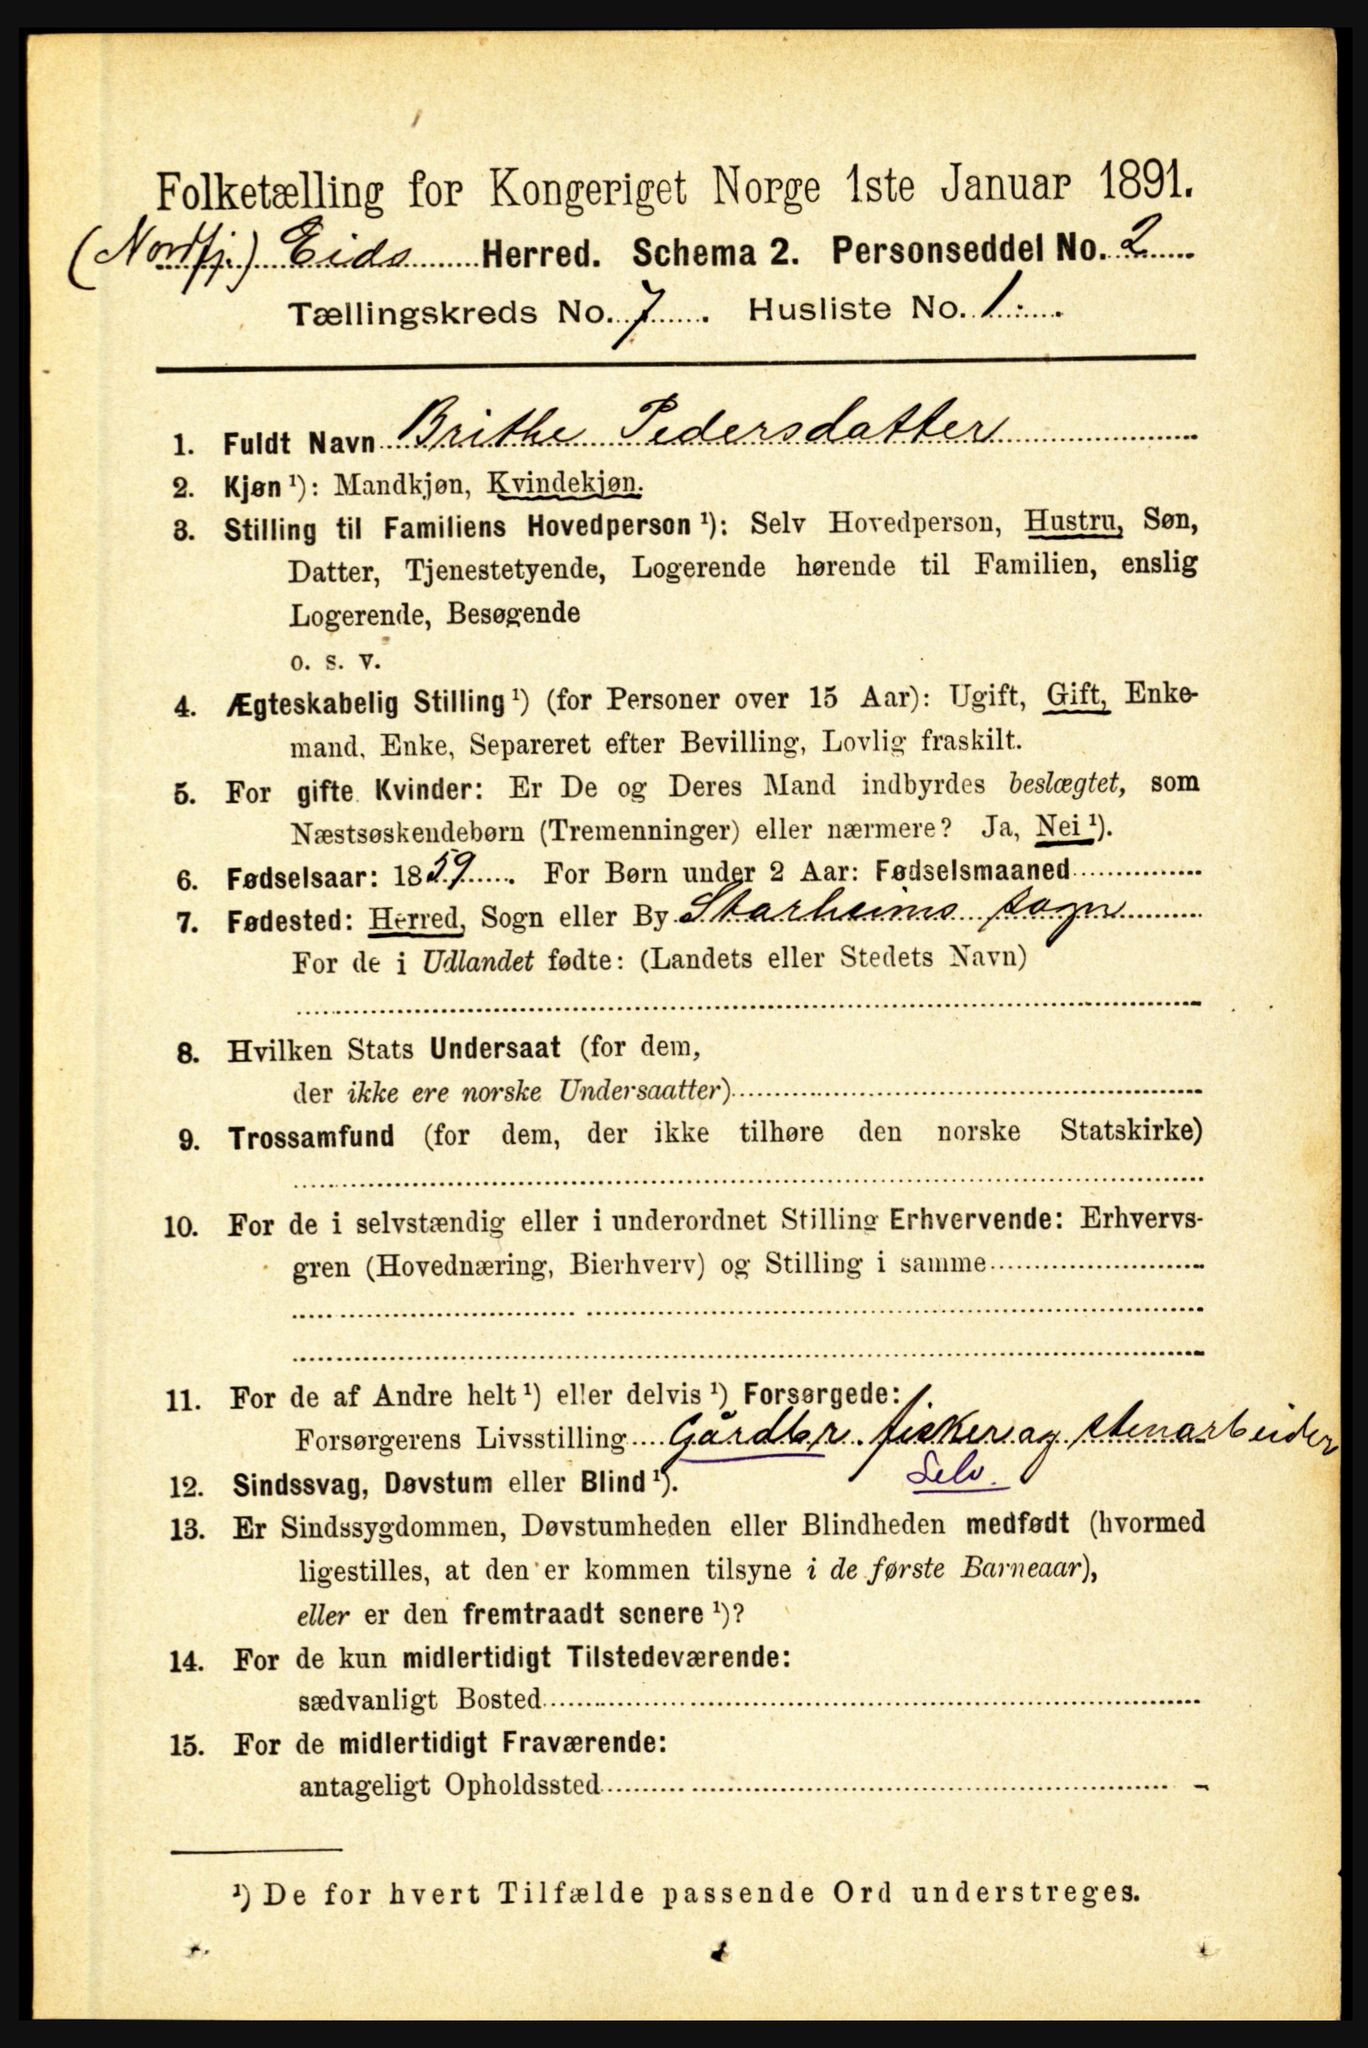 Folketælling for Kongeriget Norge 1ste Januar 1891.
(Nordfj.) Eids Herred. Schema 2. Personseddel No. 2
Tællingskreds No. 7. Husliste No. 1.
1. Fuldt Navn Brithe Pedersdatter
2. Kjøn ¹): Mandkjøn, Kvindekjøn.
3. Stilling til Familiens Hovedperson ¹): Selv Hovedperson, Hustru, Søn,
Datter, Tjenestetyende, Logerende hørende til Familien, enslig
Logerende, Besøgende
o. s. v.
4. Ægteskabelig Stilling ¹) (for Personer over 15 Aar): Ugift, Gift, Enke-
mand, Enke, Separeret efter Bevilling, Lovlig fraskilt.
5. For gifte Kvinder: Er De og Deres Mand indbyrdes beslægtet, som
Næstsøskendebørn (Tremenninger) eller nærmere? Ja, Nei ¹).
6. Fødselsaar: 1859. For Børn under 2 Aar: Fødselsmaaned
7. Fødested: Herred, Sogn eller By Starheims sogn
For de i Udlandet fødte: (Landets eller Stedets Navn)
8. Hvilken Stats Undersaat (for dem,
der ikke ere norske Undersaatter)
9. Trossamfund (for dem, der ikke tilhøre den norske Statskirke)
10. For de i selvstændig eller i underordnet Stilling Erhvervende: Erhvervs-
gren (Hovednæring, Bierhverv) og Stilling i samme
11. For de af Andre helt ¹) eller delvis ¹) Forsørgede:
Forsørgerens Livsstilling Gårdbr. fisker og stenarbeider
Selv.
12. Sindssvag, Døvstum eller Blind ¹).
13. Er Sindssygdommen, Døvstumheden eller Blindheden medfødt (hvormed
ligestilles, at den er kommen tilsyne i de første Barneaar),
eller er den fremtraadt senere ¹)?
14. For de kun midlertidigt Tilstedeværende:
sædvanligt Bosted
15. For de midlertidigt Fraværende:
antageligt Opholdssted
¹) De for hvert Tilfælde passende Ord understreges.